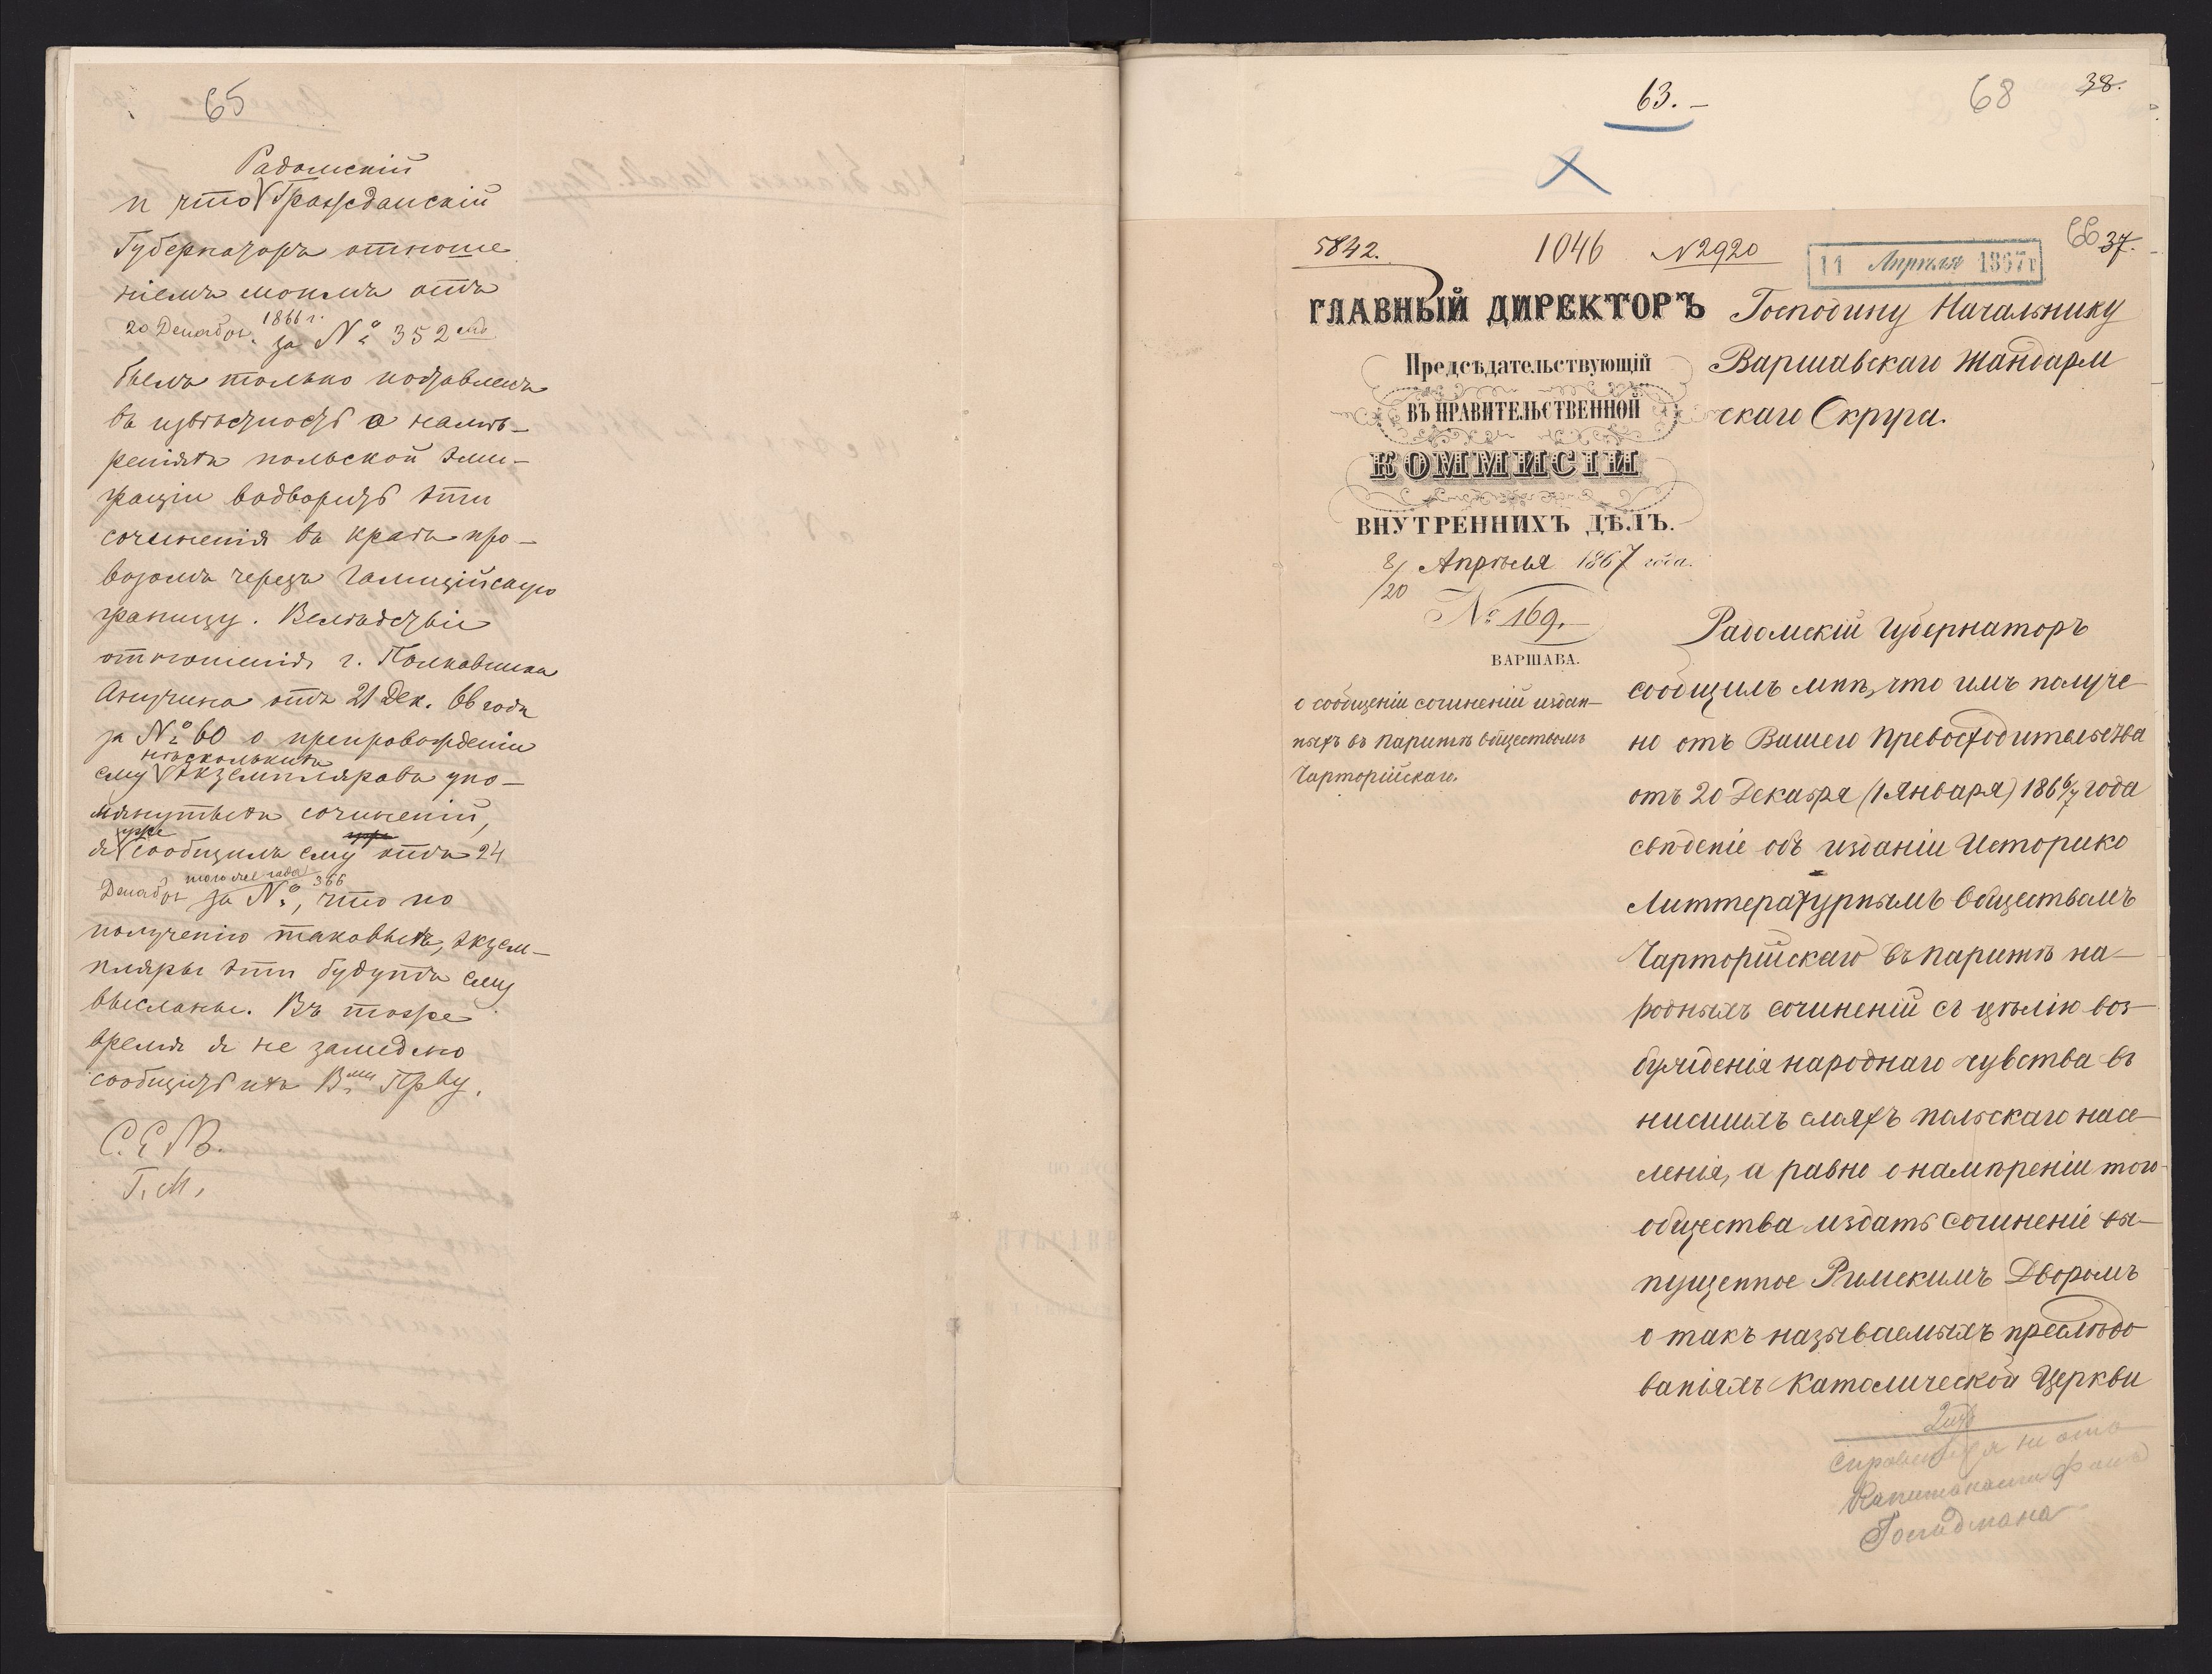 65
Радомскій
и что Гражданскій
Губернаторъ отноше
ніемъ моимъ отъ
20 Декабря 1866 г. за № 352
былъ только поставленъ
въ извѣстность о намѣ-
реніяхъ польской эми-
граціи водворить эти
сочиненія въ краѣ про-
возомъ черезъ Галиційскую
границу. Вслѣдствіе
отношенія г. Полковника
Анучина отъ 21 Дек. 66 года
за № 60 о препровожденіи
ему нѣсколькихъ экземпляровъ упо-
мянутыхъ сочиненій,
я уже сообщилъ ему отъ 24
Декабря того же года за № 366, что по
полученію таковыхъ, экзем-
пляры эти будутъ ему
высланы. Въ тоже
время я не замедлю
сообщить ихъ В. Прву.
С. Е. В.
Г. М.
63.-
68 38.
5842. 1046 № 2920
11 Апрѣля 1867 г
66 37.
ГЛАВНЫЙ ДИРЕКТОРЪ
Предсѣдательствующій
ВЪ ПРАВИТЕЛЬСТВЕННОЙ
КОММИСІИ
ВНУТРЕННИХЪ ДѢЛЪ.
8/20 Апрѣля 1867 года.
№ 169.
ВАРШАВА.
о сообщеніи сочиненій издан-
ныхъ въ Парижѣ обществомъ
Чарторійскаго.
Господину Начальнику
Варшавскаго Жандарм
скаго Округа.
Радомскій Губернаторъ
сообщилъ мнѣ, что имъ получе-
но отъ Вашего Превосходительства
отъ 20 Декабря (1 Января) 1866/7 года
свѣденіе объ изданіи Историко
Литтературнымъ Обществомъ
Чарторійскаго въ Парижѣ на-
родныхъ сочиненій съ цѣлію воз-
бужденія народнаго чувства въ
нисшихъ слояхъ польскаго насе-
ленія, а равно о намѣреніи того
общества издать сочиненіе вы-
пущенное Римскимъ Дворомъ
о такъ называемыхъ преслѣдо
ваніяхъ Католической Церкви